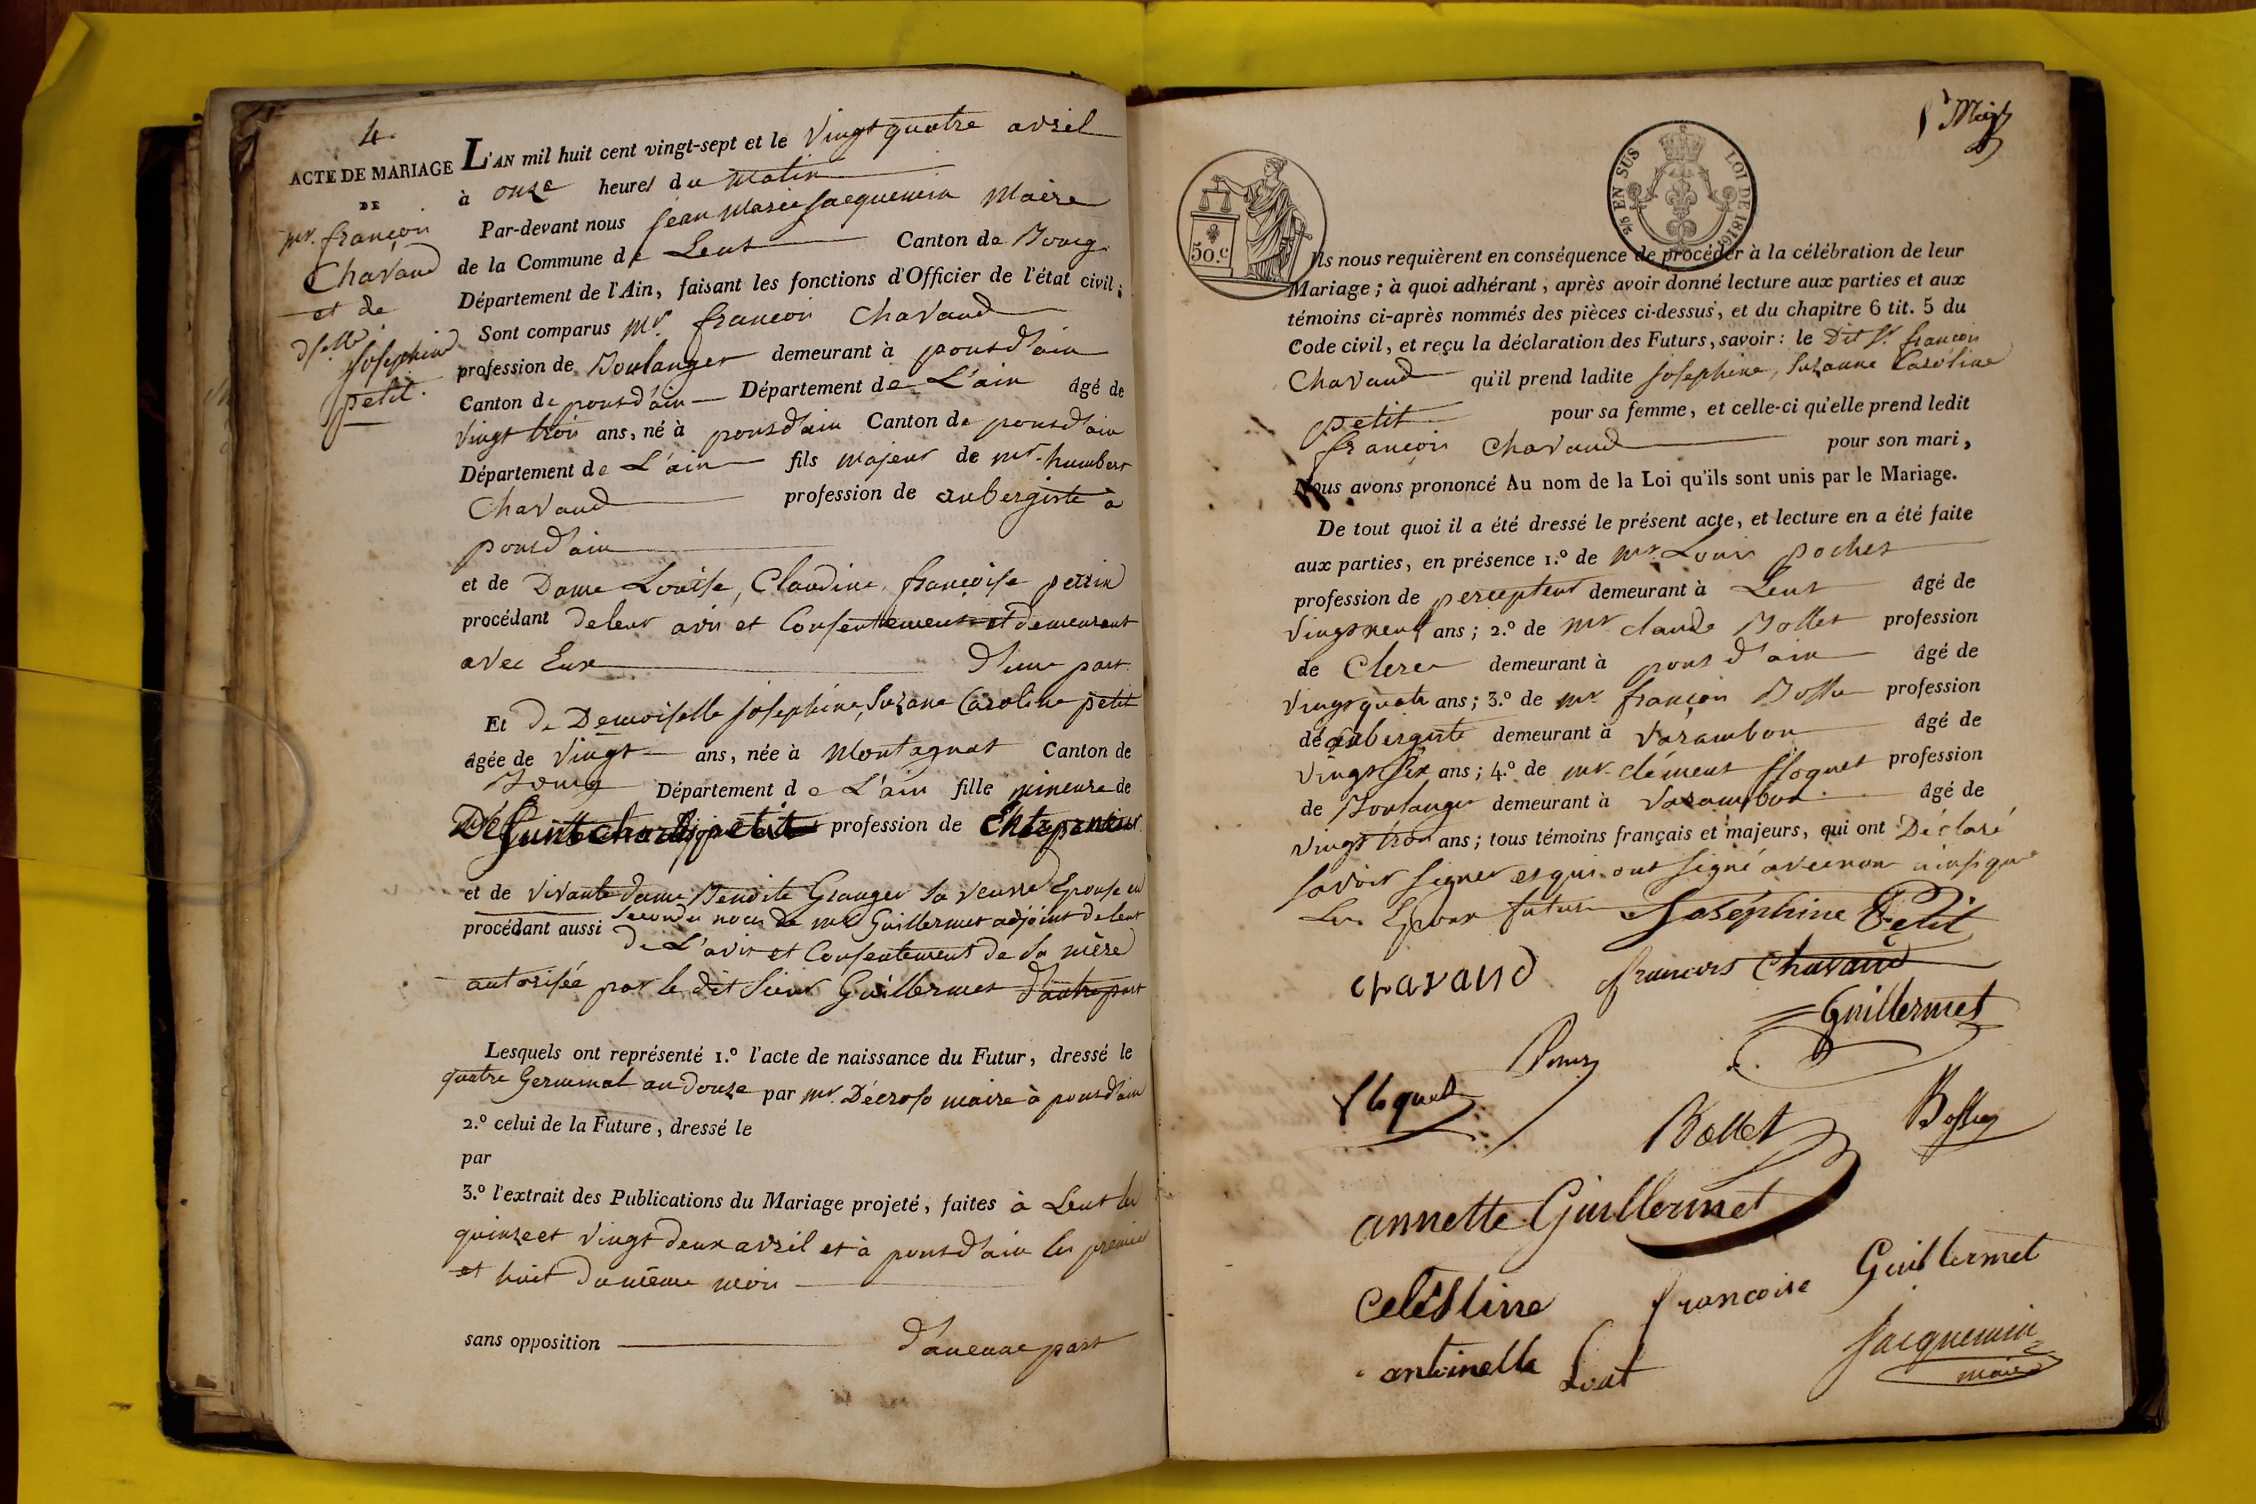 4.
ACTE DE MARIAGE
DE
mr. françois
Chavand
et de
dselle
Josephine
petit.
L'AN mil huit cent vingt-sept et le Vingt quatre avril
à onze heures du Matin
Par-devant nous jean Marie Jacquemin Maire
de la Commune de Lent Canton de Bourg
Département de l'Ain, faisant les fonctions d'Officier de l'état civil;
Sont comparus mr. françois Chavand
profession de Boulanger demeurant à pont d'ain
Canton de pont d'ain Département de L'ain âgé de
Vingt trois ans, né à pont d'ain Canton de pont d'ain
Département de L'ain fils majeur de mr. humbert
Chavand profession de aubergiste à
pont d'ain
et de Dame Louise, Claudine, françoise perrin
procédant de leur avis et Consentement et demeurant
avec Eux d'une part.
Et de Demoiselle josephine, Suzane Caroline petit
âgée de Vingt ans, née à Montagnat Canton de
Bourg Département de L'ain fille mineure de
Défunt charles petit profession de
et de vivante dame Bendite Granger sa veuve Epouse en
secondes noces de mr Guillermet adjoint de lent
procédant aussi de L'avis et Consentement de sa mère
autorisée par le dit Sieur Guillermet d'autre part
Lesquels ont représenté 1.º l'acte de naissance du Futur, dressé le
quatre Germinal an douze par mr. Décroso maire à pont d'ain
2.º celui de la Future, dressé le
par
3.º l'extrait des Publications du Mariage projeté, faites à Lent les
quinze et vingt deux avril et à pont d'ain les premier
et huit du même mois
sans opposition d'aucune part
50.c
EN SUS LOI DE 1816
Ils nous requièrent en conséquence de procéder à la célébration de leur
Mariage; à quoi adhérant, après avoir donné lecture aux parties et aux
témoins ci-après nommés des pièces ci-dessus, et du chapitre 6 tit. 5 du
Code civil, et reçu la déclaration des Futurs, savoir: le Dit Sr. françois
Chavand qu'il prend ladite josephine, Suzanne Caroline
petit pour sa femme, et celle-ci qu'elle prend ledit
françois Chavand pour son mari,
Nous avons prononcé Au nom de la Loi qu'ils sont unis par le Mariage.
De tout quoi il a été dressé le présent acte, et lecture en a été faite
aux parties, en présence 1.º de mr. Louis pochet
profession de percepteur demeurant à Lent âgé de
Vingt neuf ans; 2.º de mr claude Bollet profession
de Clerc demeurant à pont d'ain âgé de
Vingt quatre ans; 3.º de mr françois Bossu profession
de aubergiste demeurant à Varambon âgé de
Vingt Six ans; 4.º de mr. clément floquet profession
de Boulanger demeurant à Varambon âgé de
vingt trois ans; tous témoins français et majeurs, qui ont Déclaré
savoir signer et qui ont signé avec nous ainsi que
les Epoux futurs Joséphine Petit
chavand francois Chavand
Guillermet
floquet
Bollet
annette Guillermet
Celestine francoise Guillermet
antoinette
Jacquemin
maire